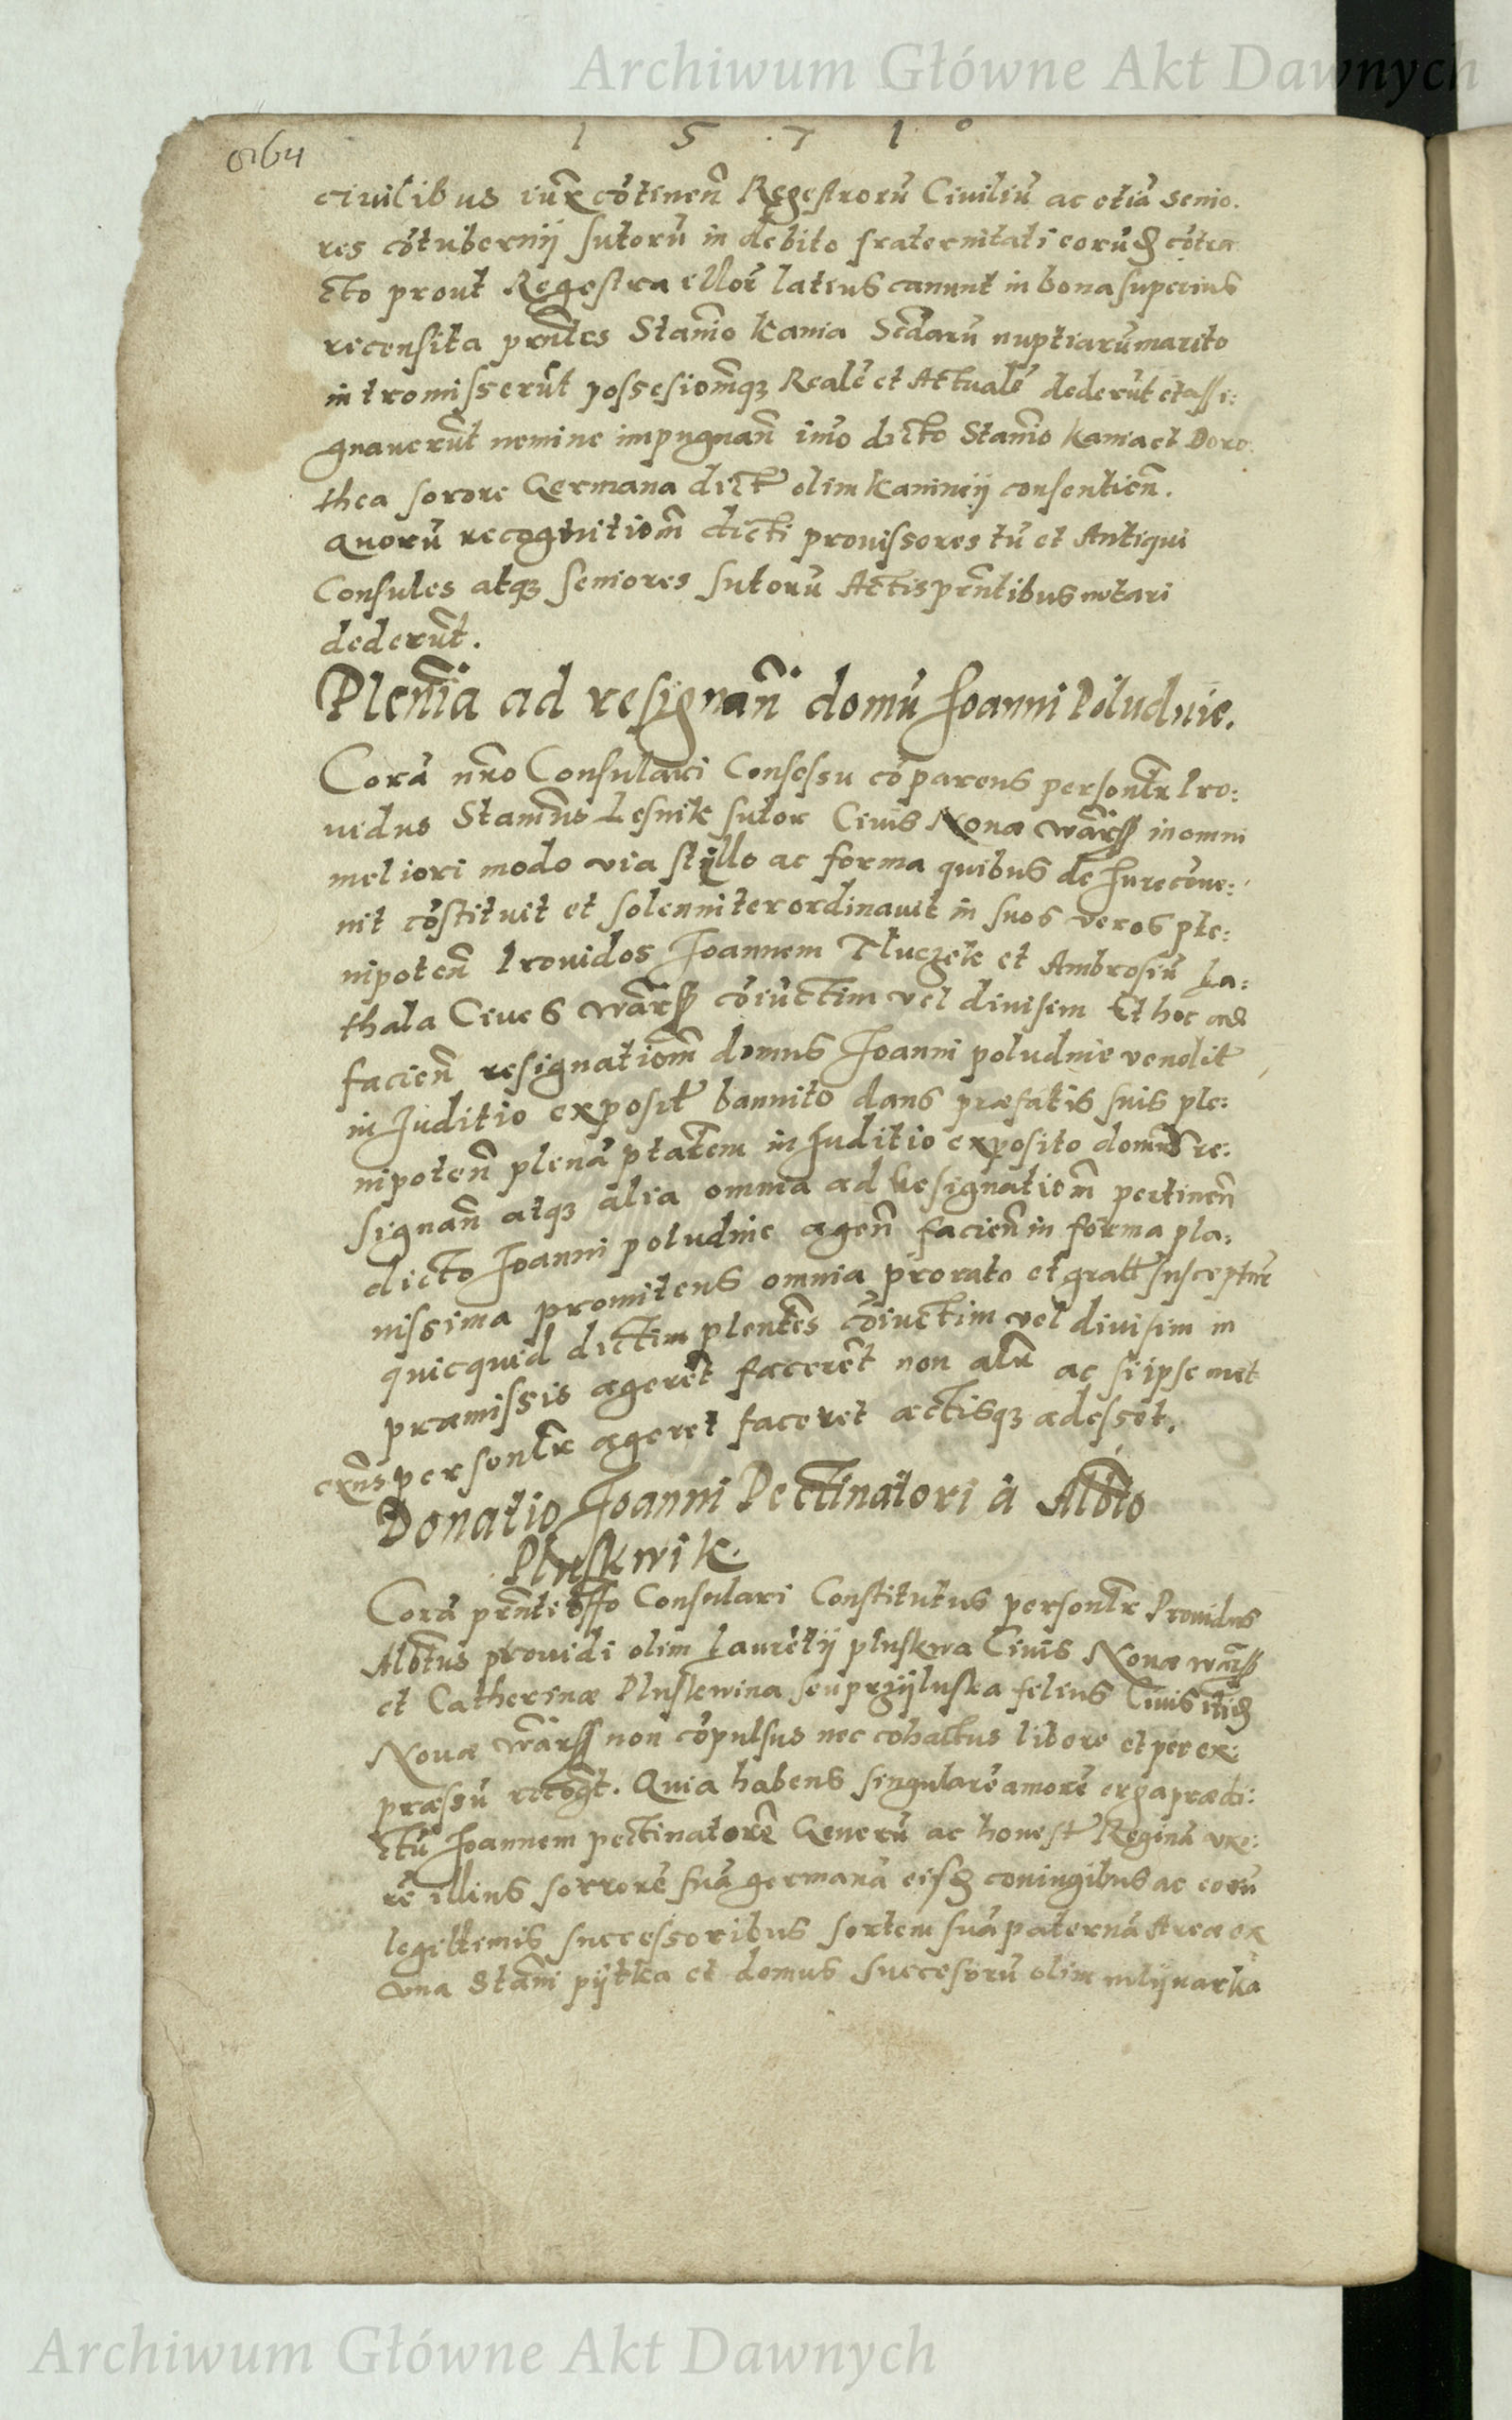 Archiwum Główne Akt Dawnych
1 5 7 1º
civilibus iux̃ cõtinen̄ Regestrorũ Civiliũ ac etiã Senio.
res cõtubernij sutorũ in debito fraternitati eorũd cõtra
cto prout Regestra illor̃ latius canunt in bona superius
recensita pñtes Stanño Kania Scdarũ nuptiarũ marito
intromisserũt possesiom̃q3 Realẽ et Actualẽ dederũt et assi:
gnaverũt nemine impugnañ imo dicto Stanño Kania et Doro.
thea sorore Germana dict olim Kaninij consentieñ.
Quorũ recognitiom̃ dicti provissores tũ et Antiqui
Consules atq3 Seniores sutorũ Actis pñtibus notari
dederũt.
Pleñia ad resignañ domũ Joanni Poludnie.
Corã nño Consulari Consessu cõparens personlr Pro:
vidus Stanñus Lesnik sutor Civis Nova Warss in omni
meliori modo via stillo ac forma quibus de Jure cõve:
nit cõstituit et solenniter ordinavit in suos veros ple:
nipoteñ Providos Joannem Tluczek et Ambrosiũ La:
thala Cives Warss cõiũctim vel divisim Et hoc ad
facieñ resignatiom̃ domus Joanni poludnie vendit
in Juditio exposit bannito dans præfatis suis ple:
nipoteñ plenã ptatem in Juditio exposito domus re:
signañ atq3 alia omnia ad Resignatiom̃ pertineñ
dicto Joanni poludnie ageñ facieñ in forma pla:
nissima promitens omnia pro rato et gratt suscepturũ
quicquid dictim plentes cõiuctim vel divisim in
præmissis agerẽt facerẽt non alr ac si ipse met
exñs personlr ageret faceret actisq3 adesset.
Donatio Joanni Pectinatori à Albto
Pluskwik.
Corã pñti offo Consulari Constitutus personlr Providus
Albtus providi olim Laurẽtij pluskwa Civis Novæ Warss
et Catherinæ Pluskwina seu przijluska filius Civis itid
Novæ Warss non cõpulsus nec cohactus libere et per ex:
præssũ recogt. Quia habens singularẽ amorẽ erga prædi:
ctũ Joannem pectinatorẽ Generũ ac honest Reginã vxo:
rẽ illius sorrorẽ suã germanã eisd coniugibus ac eorũ
legittimis successoribus sortem suã paternã Areæ ex
una Stañi pijtka et domus succesorũ olim mlijnarka
Archiwum Główne Akt Dawnych